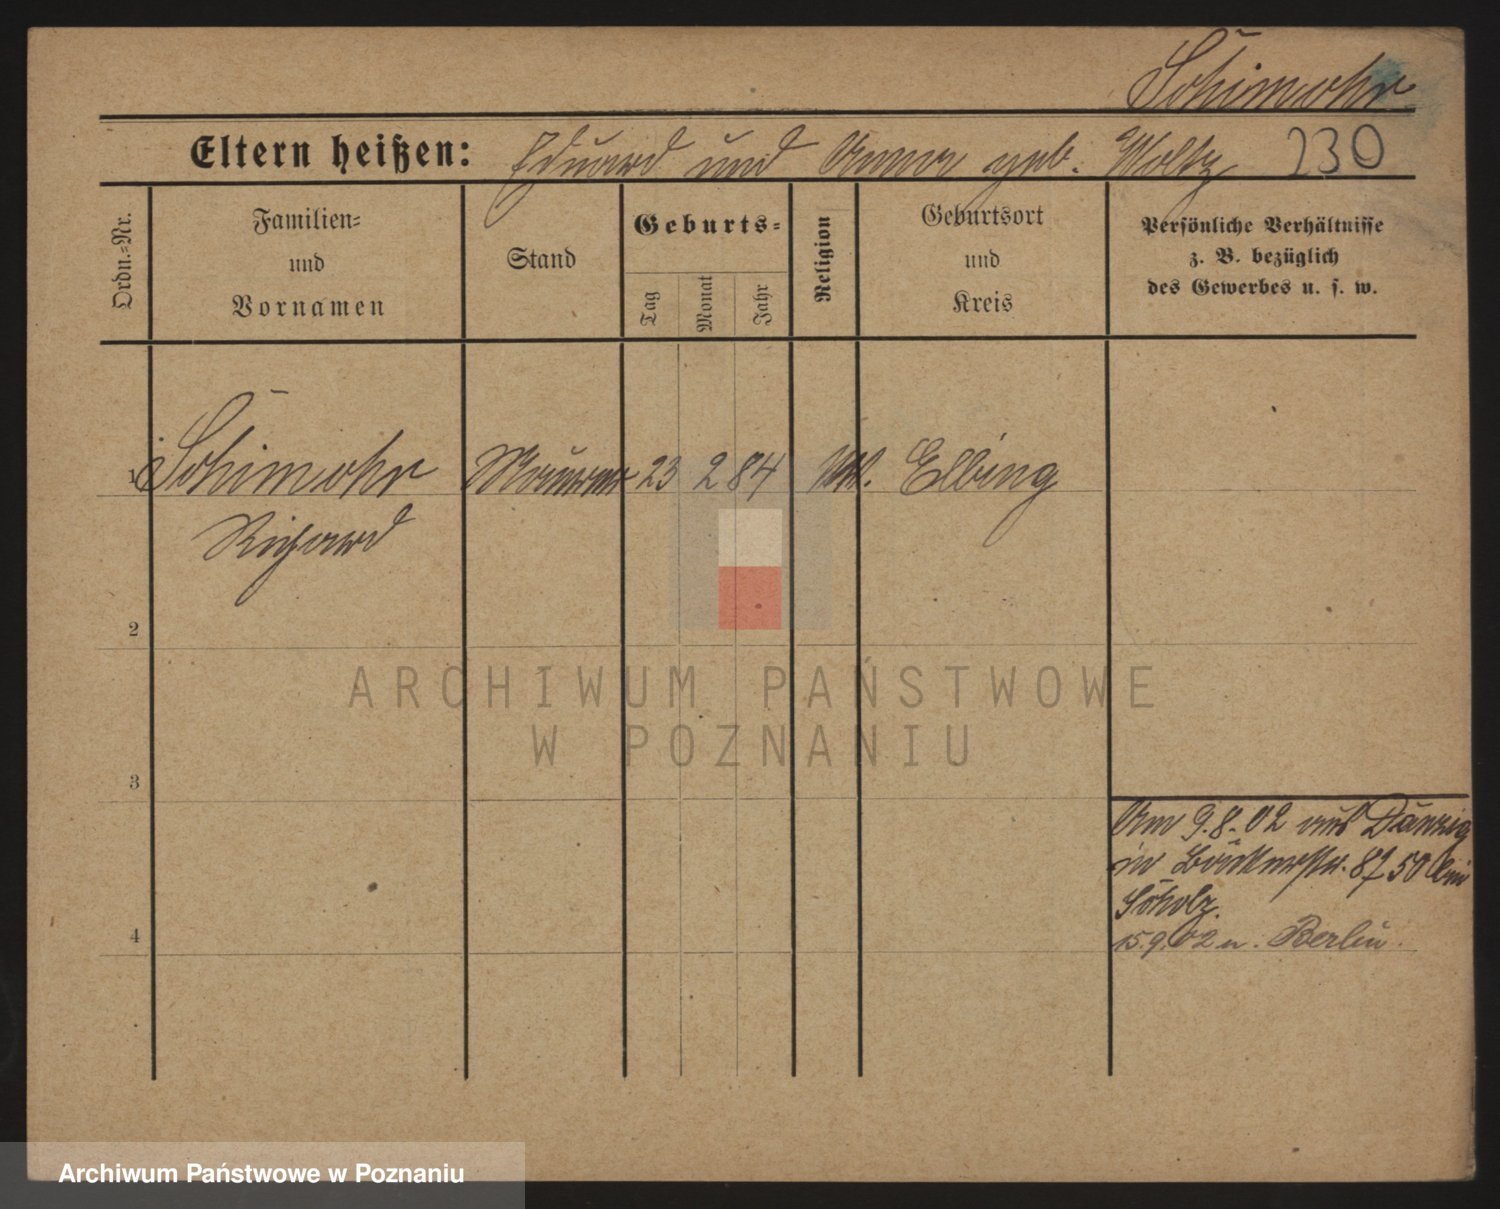 Schimohr
Eltern heißen: Eduard und Anna geb. Woltz 230
Ordn.-Nr.
Familien-
und
Vornamen
Stand
Geburts-
Tag
Monat
Jahr
Religion
Geburtsort
und
Kreis
Persönliche Verhältnisse
z. B. bezüglich
des Gewerbes u. s. w.
1 Schimohr Maurer 23 2 84 Elbing
Richard
2
ARCHIWUM PAŃSTWOWE
W POZNANIU
3
Am 9.8.02 aus Danzig
in 50 bei
Scholz.
4
15.9.02 n. Berlin.
Archiwum Państwowe w Poznaniu